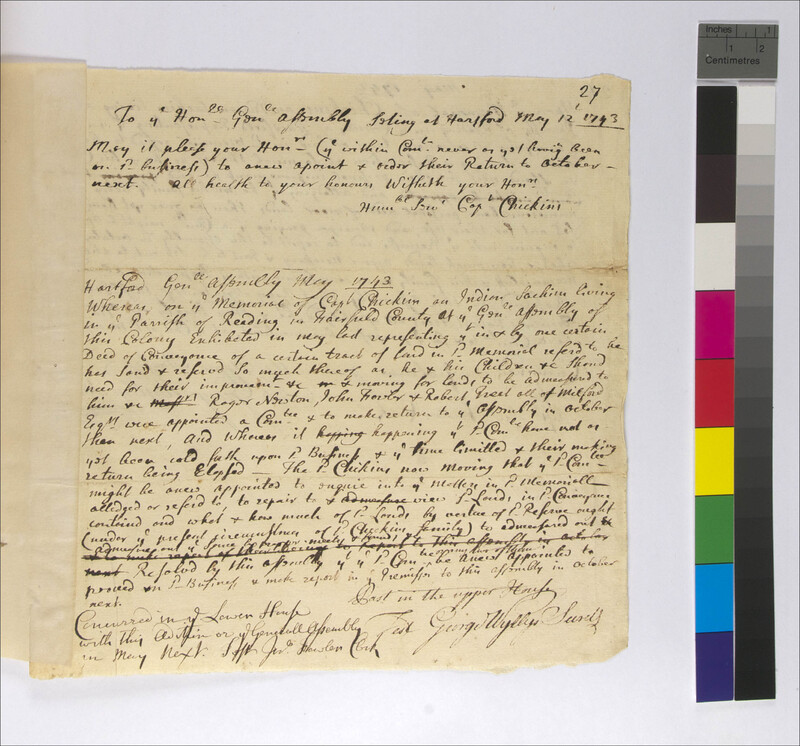 27
To ye Honble Genll Assembly Siting at Hartford May 12t 1743
May it pleise your Honrs (ye within Comtt never as yet having been
on sd business) to anew apoint & order their Return to October
next. all health to your honours Wisheth your Honrs
Humble Servt Capt Chickins
Hartford Genll Assembly May 1743
Whereas, on ye Memorial of Capt Chickins an Indian Sachim living
in ye Parrish of Reading in Fairfield County at ye Genll Assembly of
this Colony Exhibited in may last representing yt in & by one certain
Deed of Conveyance of a certain tract of land in sd Memorial referd to he
has Sould & reservd So much thereof as he & his Children &c Should
need for their improvmt &c & moving for lands to be admeasurd to
him &c Roger Newton John Fowler & Robert Treet all of Milford
Esqrs were appointed a Comtee & to make return to ye Assembly in October
then next, And Whereas it hapning happening yt sd Comtt have not as
yet been cald forth upon sd Business & ye time limitted & their making
return being Elapsed — The sd Chickins now moving that ye sd Comtee
might be anew appointed to enquire into ye Matters in sd Memoriall
alledged or referd to, to repair to & admeasure view sd Lands in sd Conveyance
containd and what & how much of sd Lands by vertue of sd Reserve ought
(under ye present circumstances of sd Chickins family) to admeasurd out &
to this assembly in october
next Resolved by this Assembly yt ye sd Comtt be anew appointed to
proceed on sd Business & make report in ye Premisses to this assembly in october
next.
Past in the upper House
Test George Wyllys Secrety
Concurred in ye Lower House
with this Addition or ye Generall Assembly
in May Next. Test Jno Fowler Clerk